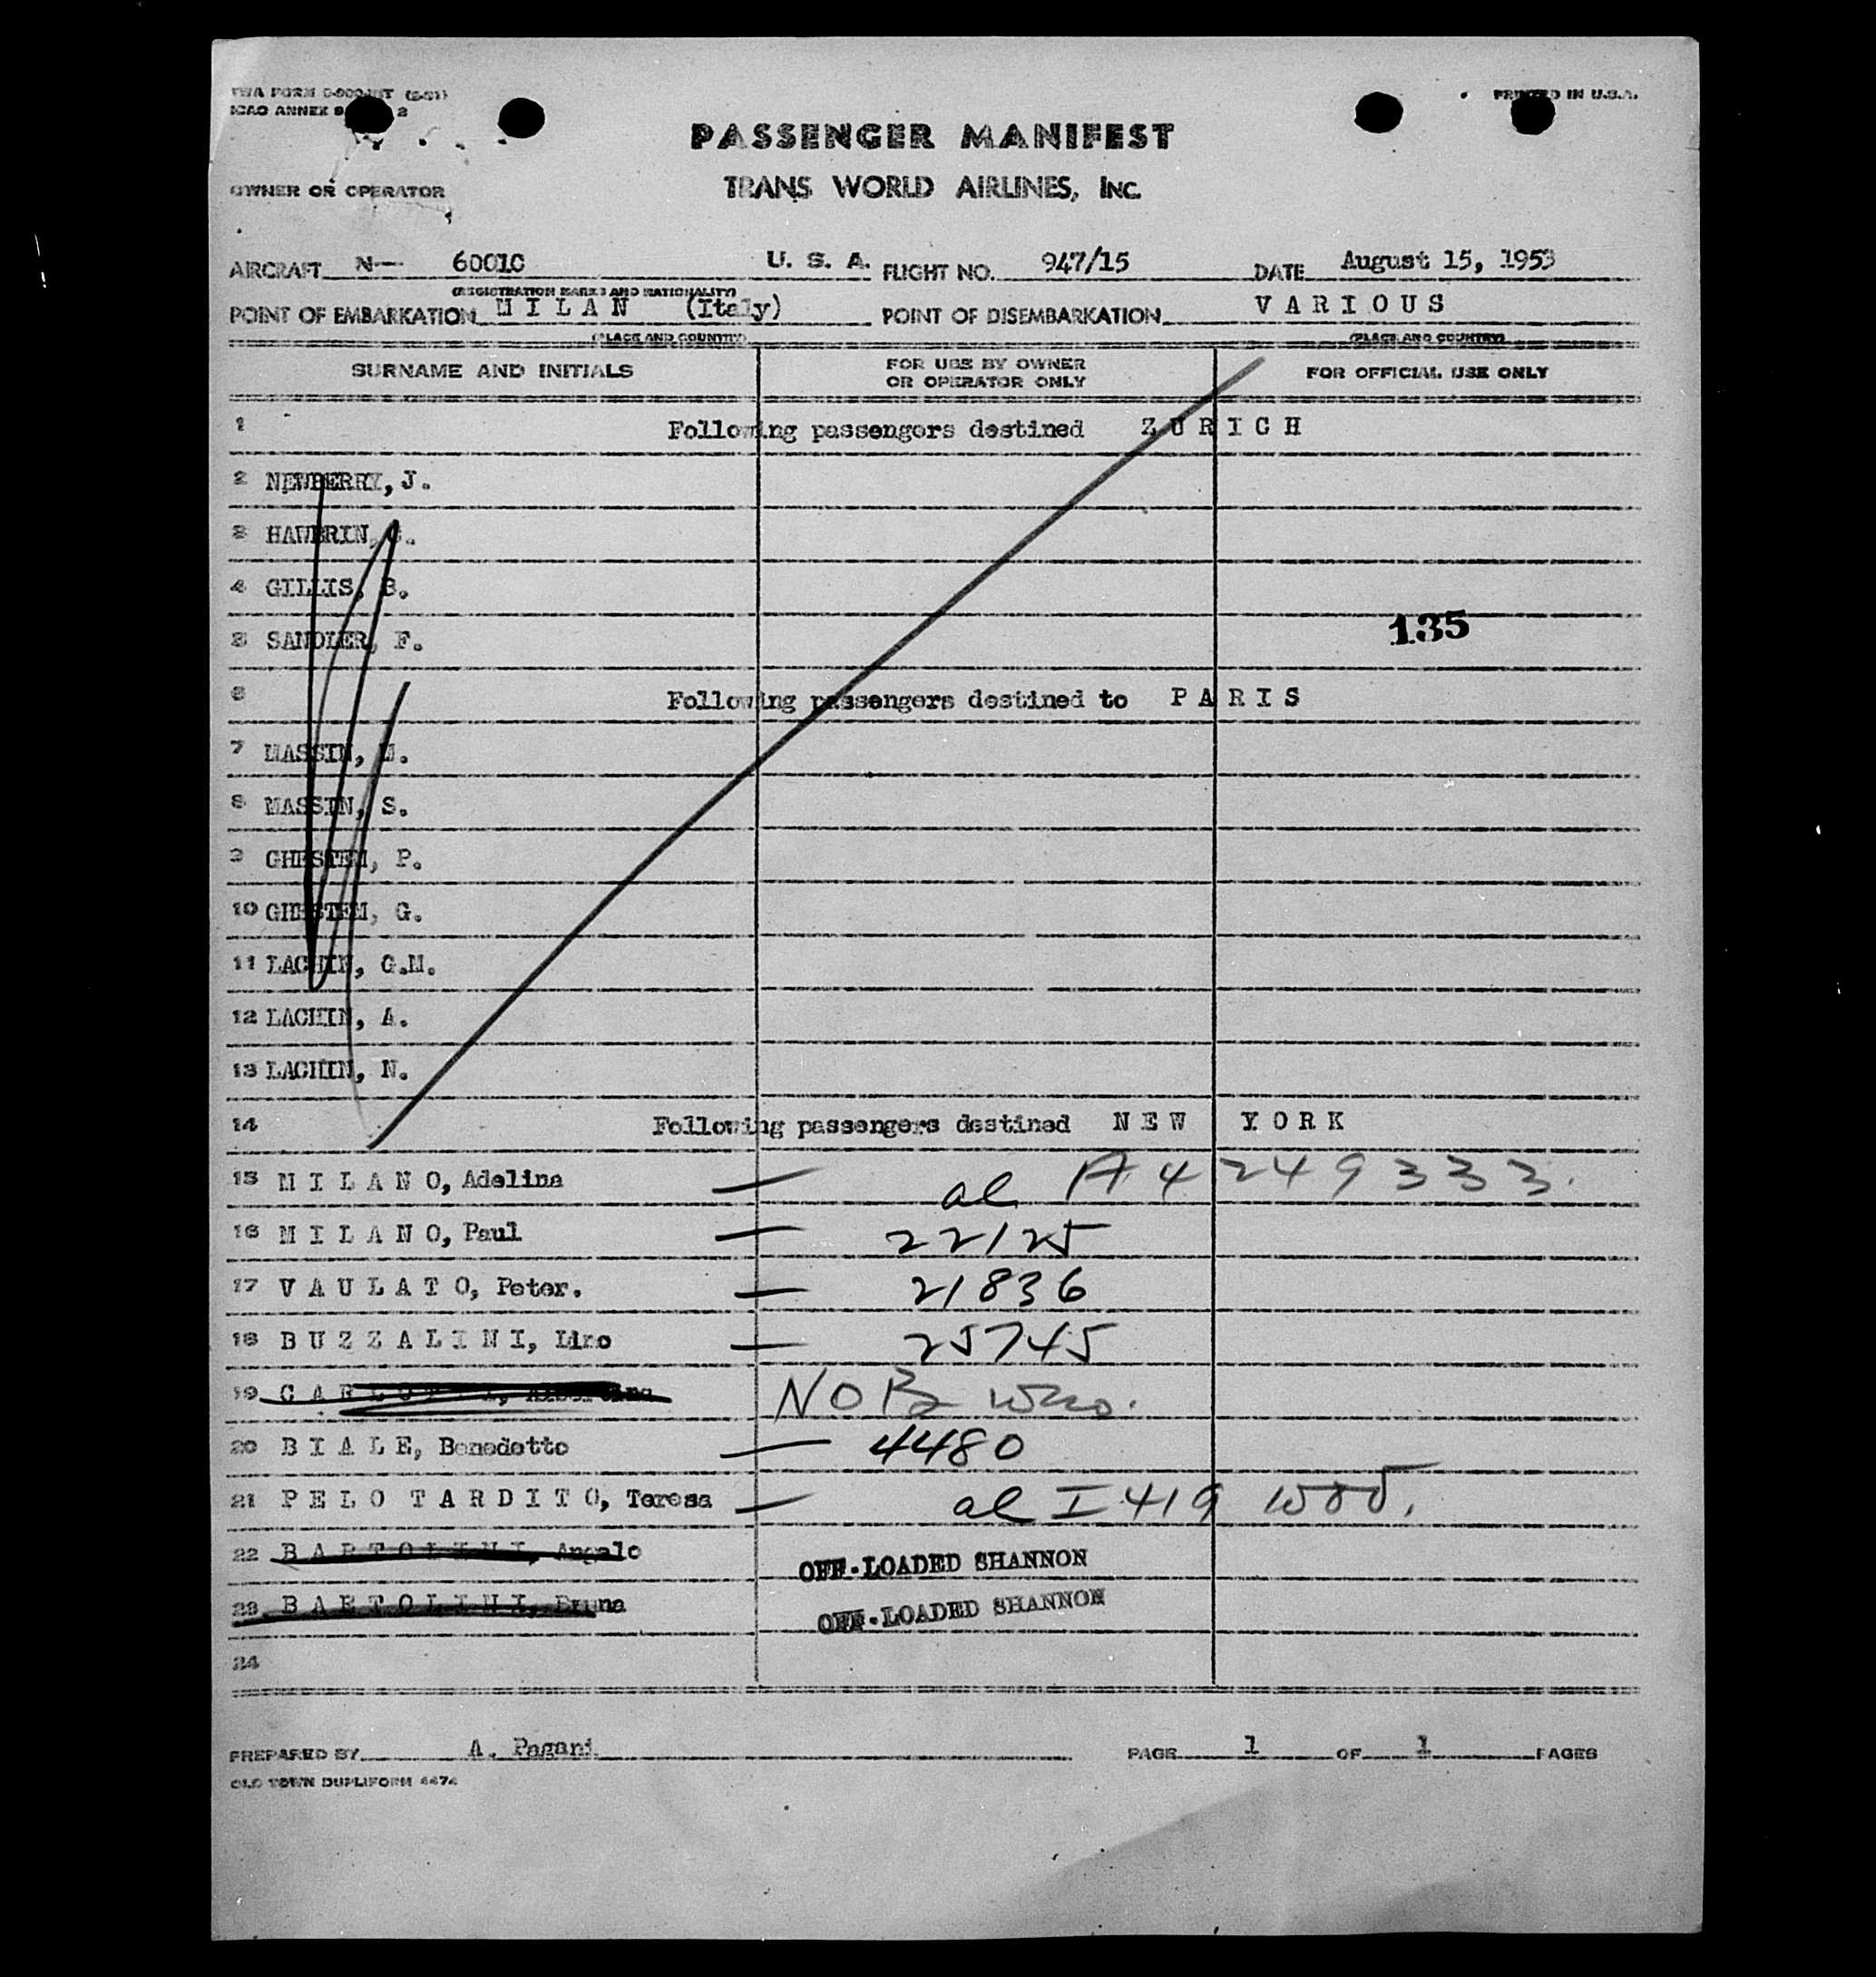 TWA FORM
PRINTED IN U.S.A.
ICAO ANNEX 9 2
PASSENGER MANIFEST
OWNER OR OPERATOR
TRANS WORLD AIRLINES, INC.
AIRCRAFT N— 60010 U. S. A. FLIGHT NO. 947/15 DATE August 15, 1953
(REGISTRATION MARKS AND NATIONALITY)
POINT OF EMBARKATION M I L A N (Italy) POINT OF DISEMBARKATION V A R I O U S
(PLACE AND COUNTRY) (PLACE AND COUNTRY)
SURNAME AND INITIALS FOR USE BY OWNER OR OPERATOR ONLY FOR OFFICIAL USE ONLY
1 Following passengers destined Z U R I C H
2 NEWBERRY, J.
3 HAWBRIN, G.
4 GILLIS, B.
5 SANDLER, F.
135
6 Following passengers destined to P A R I S
7 MASSIN, M.
8 MASSIN, S.
9 GHESTEM, P.
10 GHESTEM, G.
11 LACHIN, G.M.
12 LACHIN, A.
13 LACHIN, N.
14 Following passengers destined N E W Y O R K
15 M I L A N O, Adelina — al A4249333.
16 M I L A N O, Paul — 22125
17 V A U L A T O, Peter. — 21836
18 B U Z Z A L I N I, Lino — 25745
19 NO B
20 B I A L E, Benedetto — 4480
21 P E L O T A R D I T O, Teresa — al I 419
22 B A R T O L I N I, Angelo OFF-LOADED SHANNON
23 B A R T O L I N I, Bruna OFF-LOADED SHANNON
24
PREPARED BY A. Pagani PAGE 1 OF 1 PAGES
OLD TOWN DUPLIFORM 4474